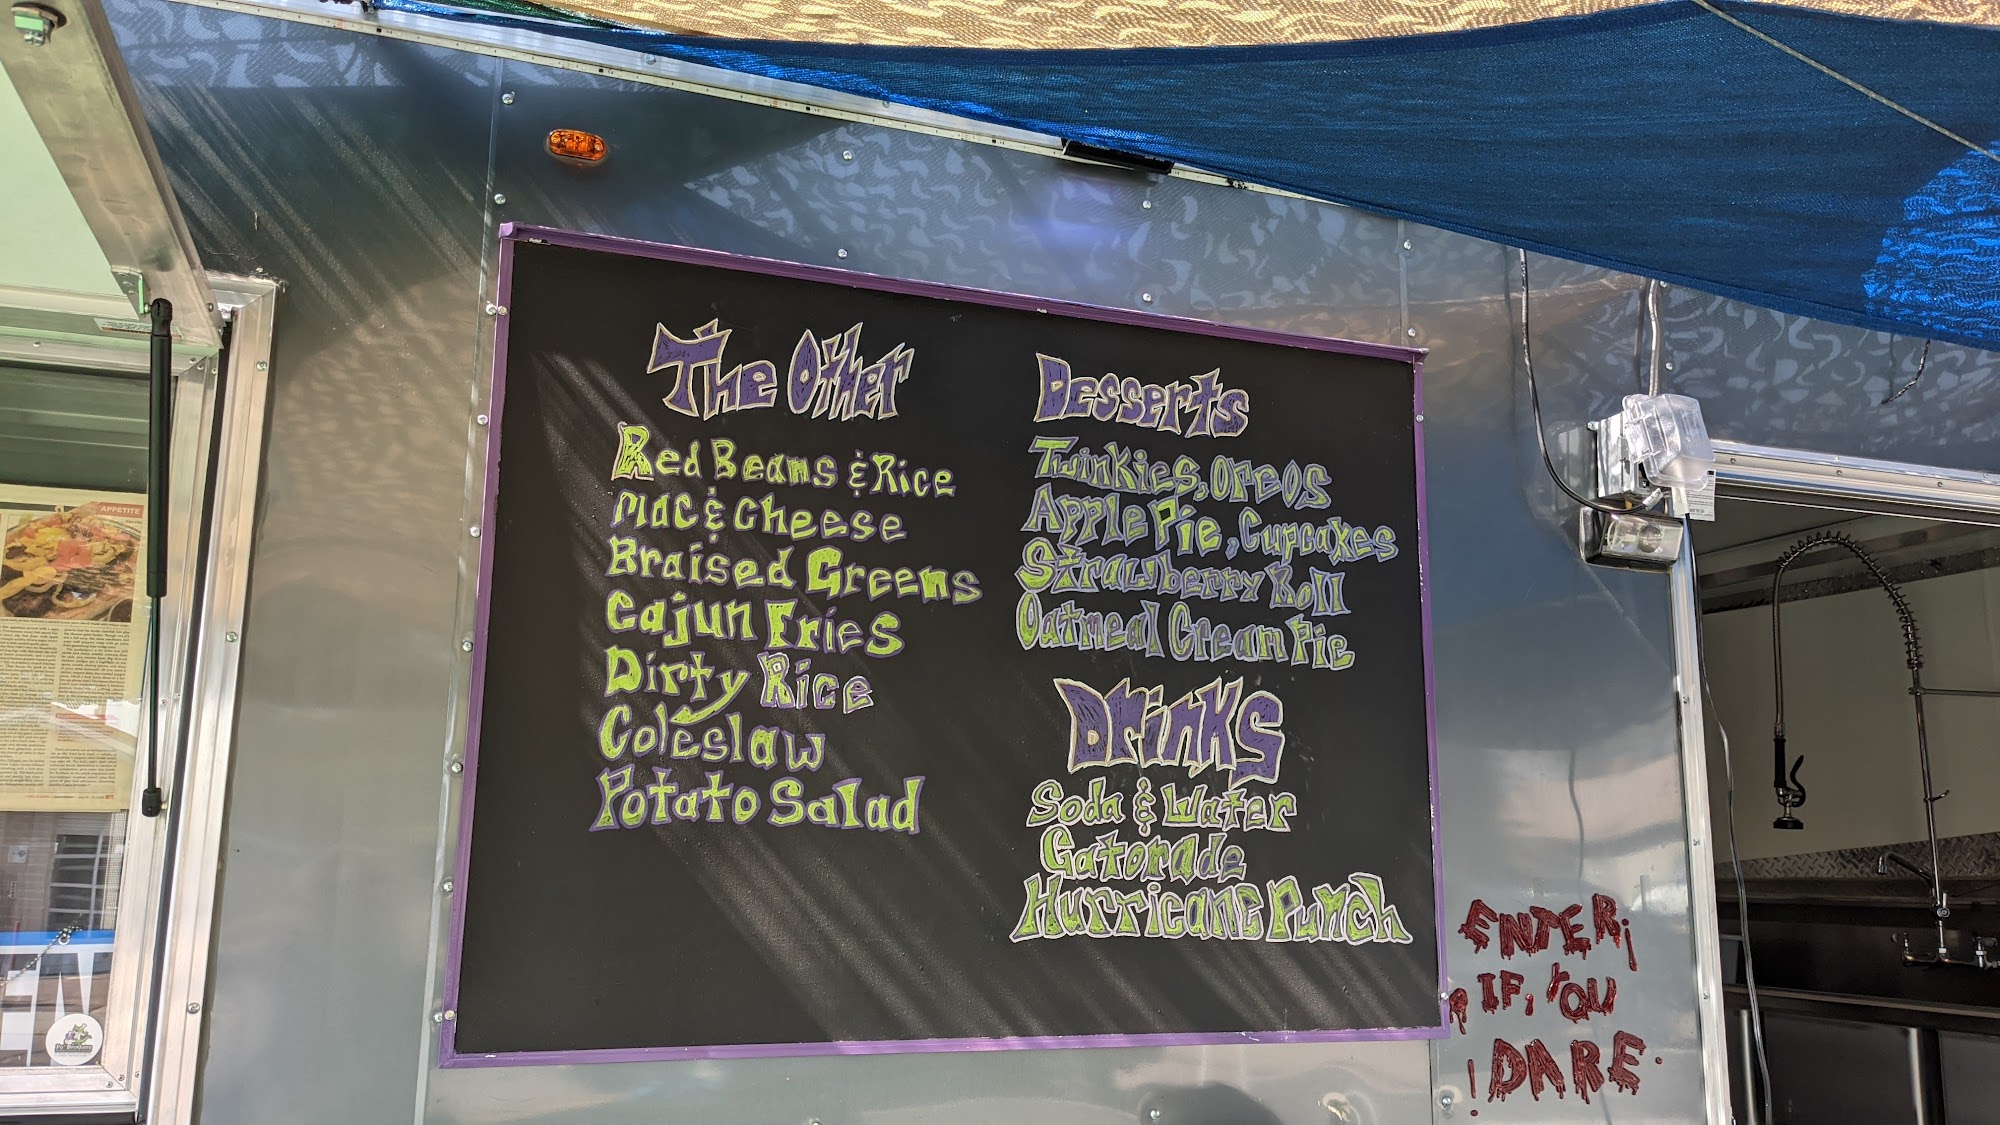 The Other
Red Beans & Rice
Mac & Cheese
Braised Greens
Cajun Fries
Dirty Rice
Coleslaw
Potato Salad
Desserts
Twinkies, Oreos
Apple Pie, Cupcakes
Strawberry Roll
Oatmeal Cream Pie
Drinks
Soda & Water
Gatorade
Hurricane Punch
ENTER
IF YOU
DARE
APPETITE
Po' Brothers